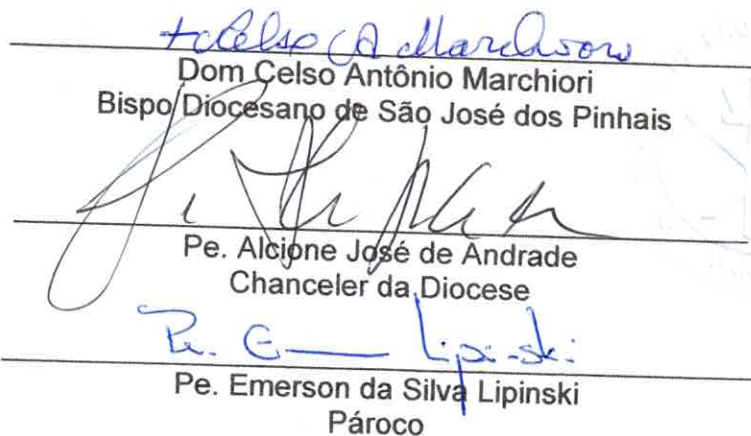 + Celso A Marchiori
Dom Celso Antônio Marchiori
Bispo Diocesano de São José dos Pinhais
Pe. Alcione José de Andrade
Chanceler da Diocese
Pe. E Lipinski
Pe. Emerson da Silva Lipinski
Pároco